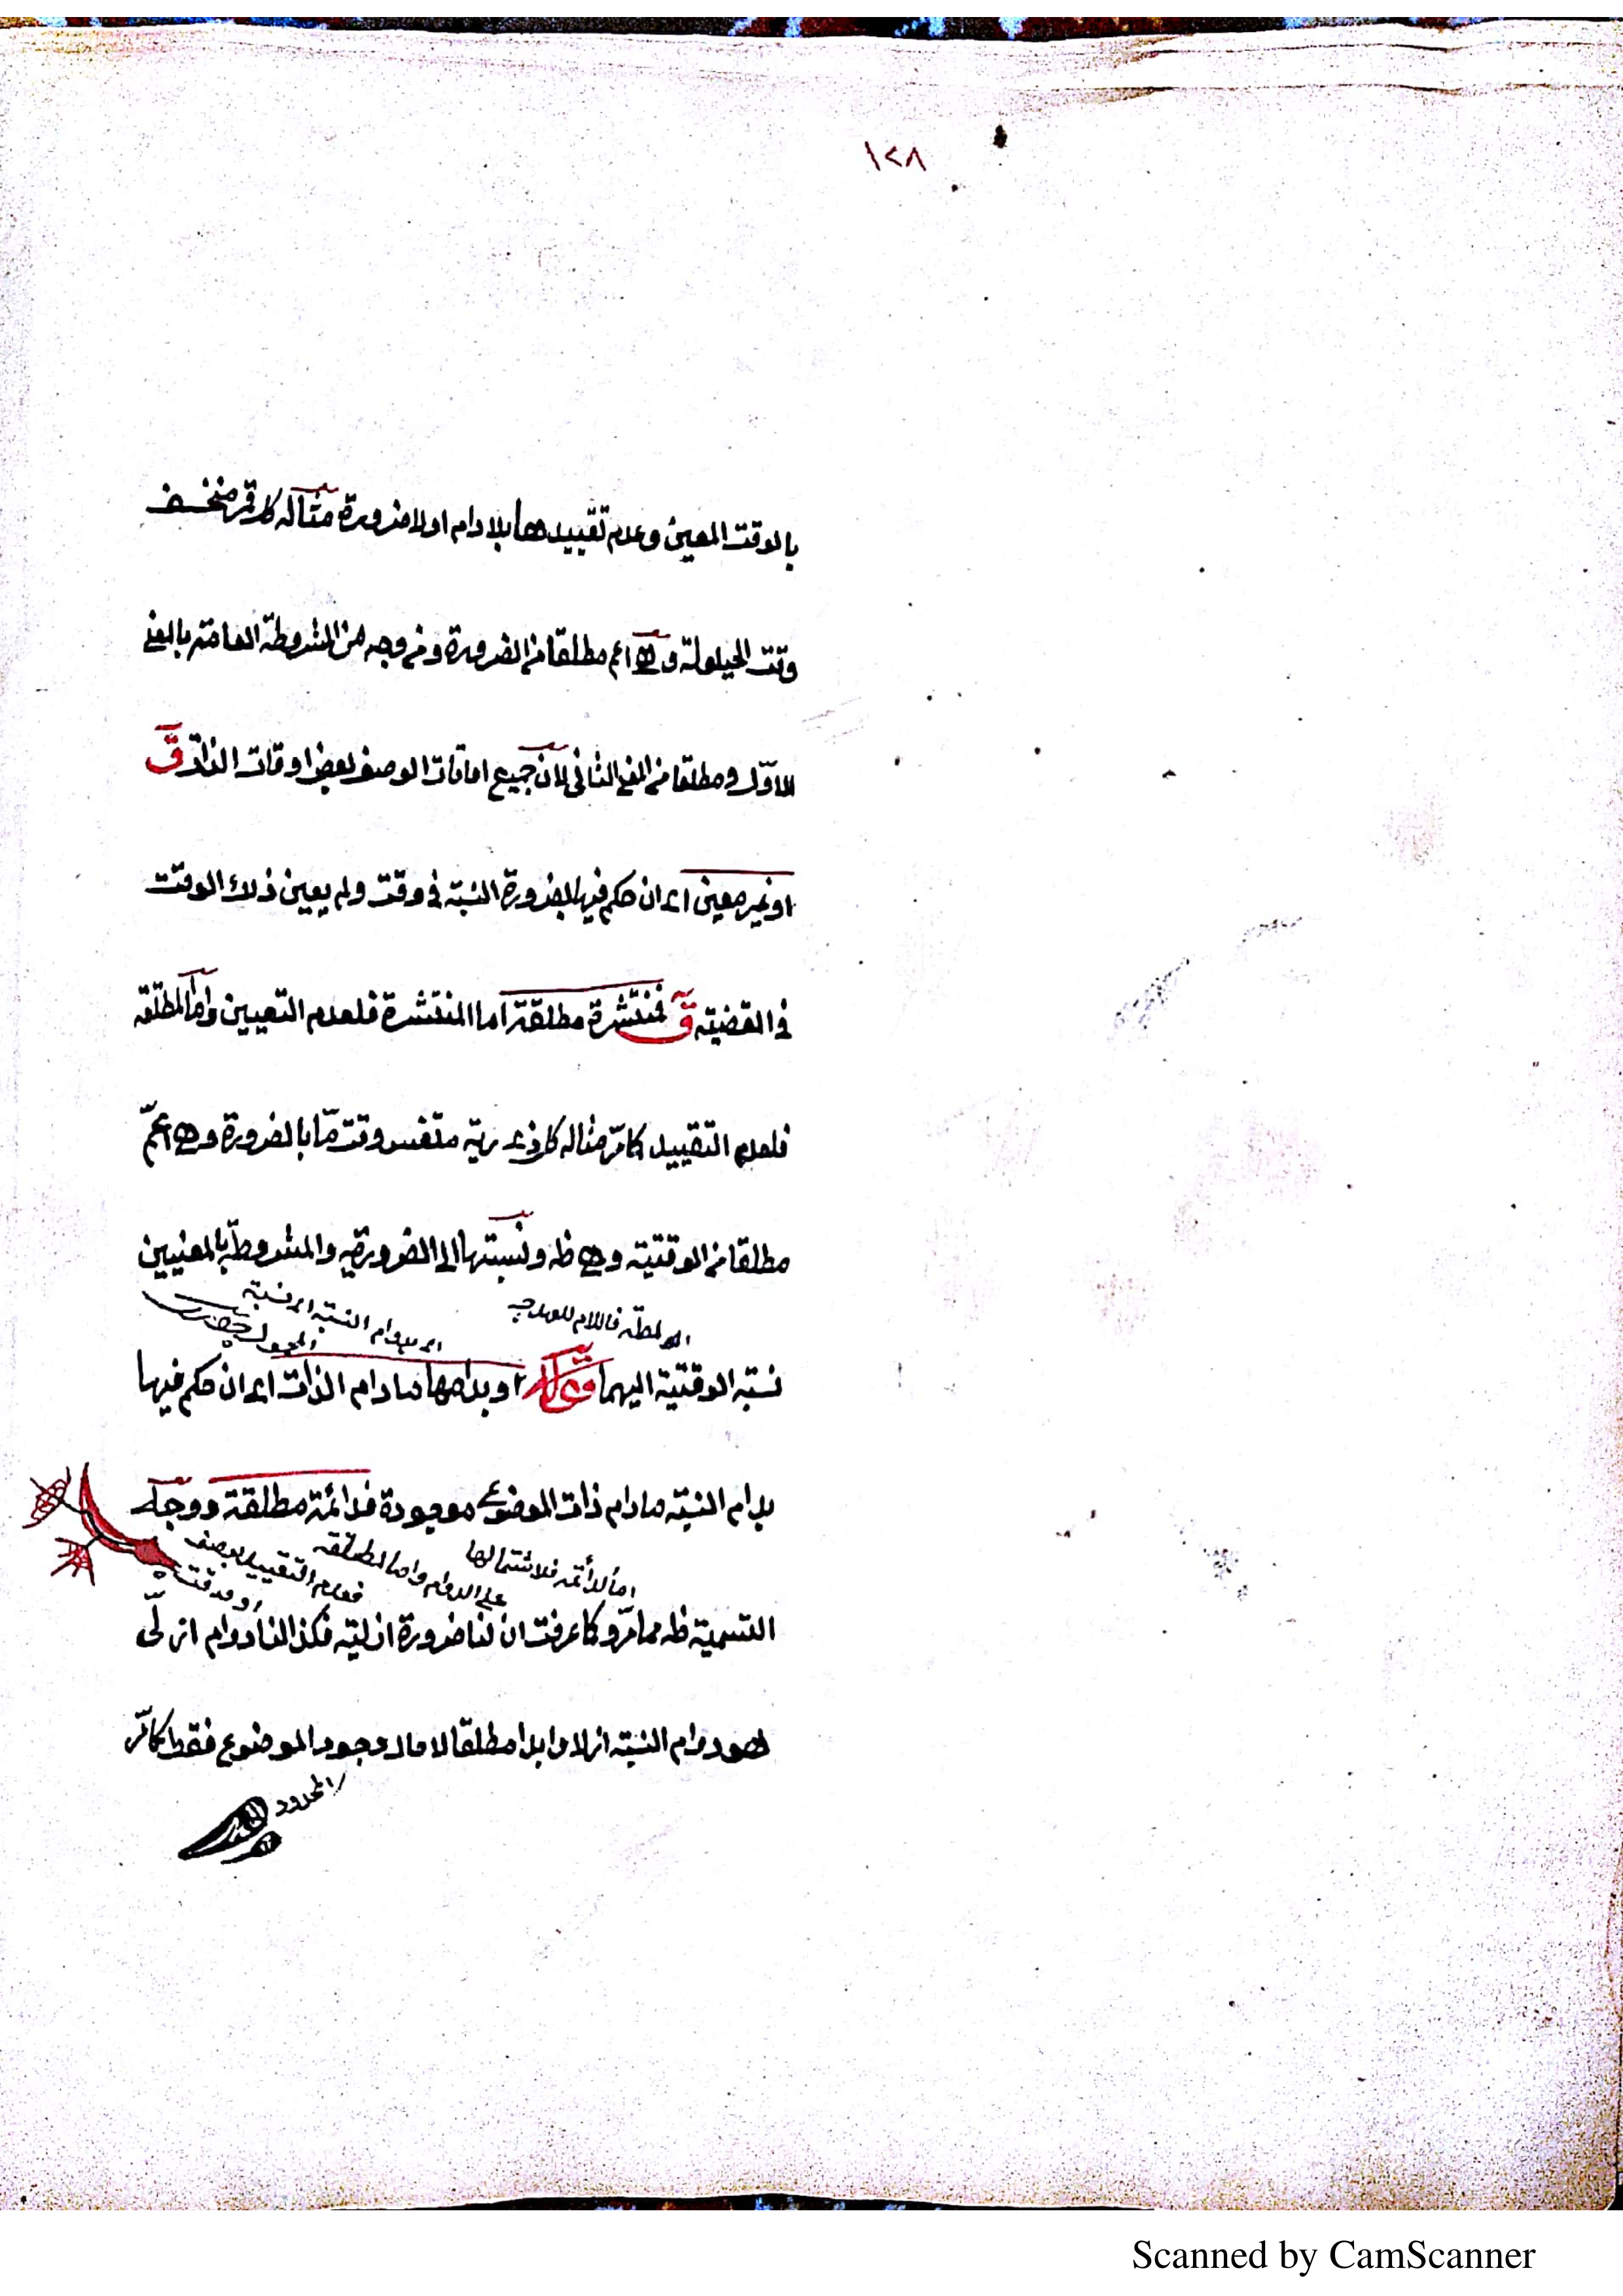 ١٢٨
بالوقت المعين وعدم تقييدها بلادام اولا ضرورة مثاله كل قمر منخسف
وقت الحيلولة وهى اعم مطلقا من الضرورة ومن وجه من المشروطة العامته بالمعنى
الاول ومطلقا من المعنى الثانى لان جميع اوقات الوصف بعض اوقات الذات ق
او غير معين اى ان حكم فيها بضرورة النسبة فى وقت ولم يعين ذلك الوقت
فى القضيته ق فمنتشرة مطلقة اما المنتشرة فلعدم التعيين واما المطلقه
فلعدم التقييد كما مّر مثاله كل ذى رية متنفس وقت مّا بالضرورة وهى اعمّ
مطلقا من الوقتية وهى ظ ونسبتها الى الضرورية والمشروطة بالمعنيين
فاللام للعهد
اى بدوام النسبة اى نسبة
نسبة الوقتية اليهما او بدامها مادام الذات اى ان حكم فيها
بدام النسبة مادام ذات الموضوع موجودة فدائمة مطلقة ووجه
اما الدائمه فلاشتمالها
على الدوام واما المطلقه
فعدم التقييد بوصف
او وقت
التسمية ظ مما مرّ وكما عرفت ان لنا ضرورة ازلية فكذا لنا دوام ازلىّ
هو دوام النسبة ازلا وابدا مطلقا لا ماد وجود الموضوع فقط كما مّر
المحدود
Scanned by CamScanner